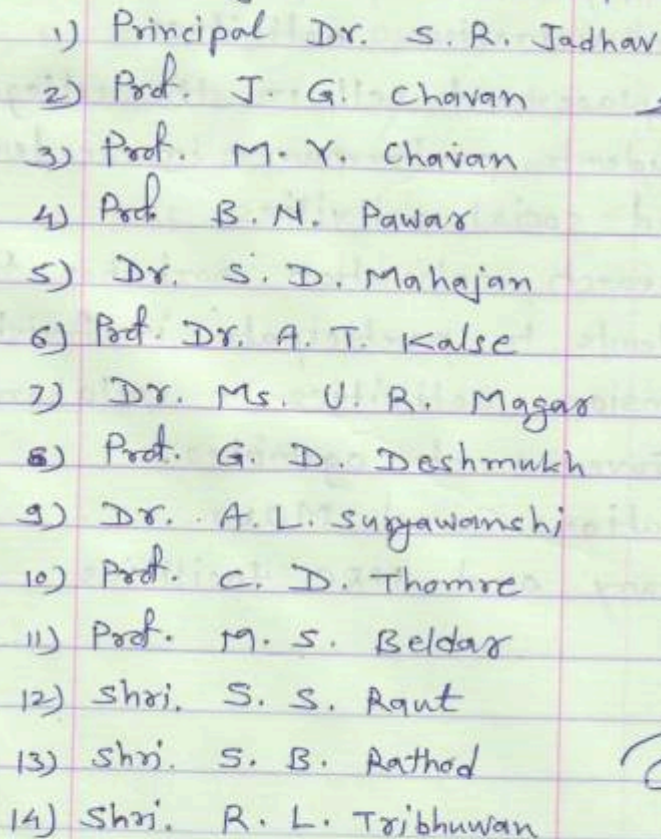 1) Principal Dr. S. R. Jadhav
2) Prof. J. G. Chavan
3) Prof. M. Y. Chavan
4) Prof. B. N. Pawar
5) Dr. S. D. Mahajan
6) Prof. Dr. A. T. Kalse
7) Dr. Ms. U. R. Magar
8) Prof. G. D. Deshmukh
9) Dr. A. L. Suryawanshi
10) Prof. C. D. Thomre
11) Prof. M. S. Beldar
12) Shri. S. S. Raut
13) Shri. S. B. Rathod
14) Shri. R. L. Tribhuwan